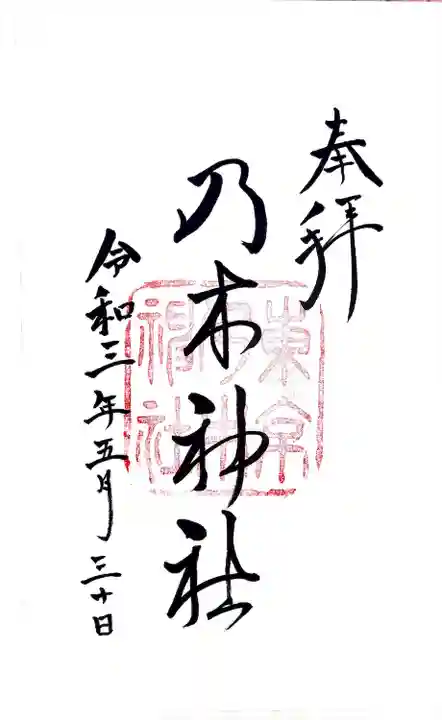 奉拝
乃木神社
東京
乃木
神社
令和三年五月三十日